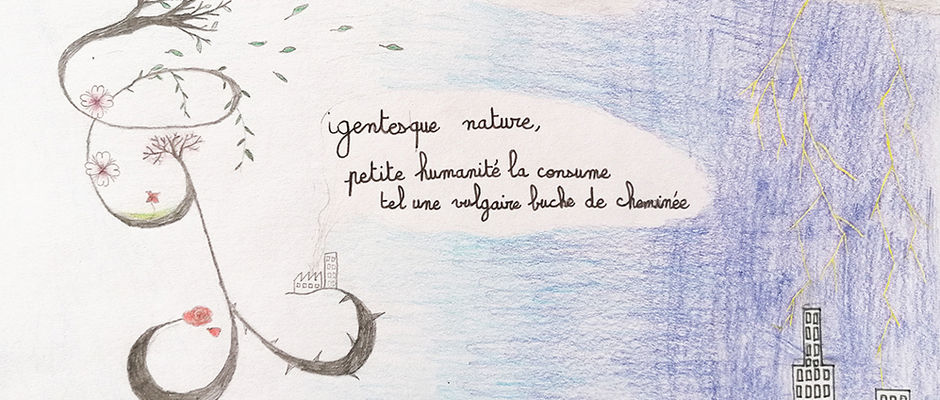 Gigentesque nature,
petite humanité la consume
tel une vulgaire buche de cheminée